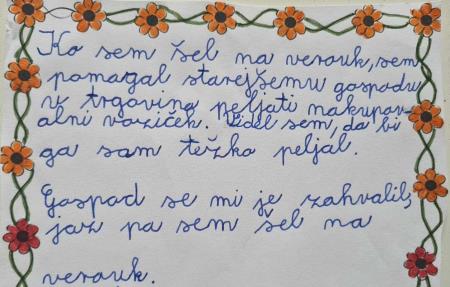 Ko sem šel na verouk, sem
pomagal starejšemu gospodu
v trgovino peljati nakupov
alni voziček. Videl sem, da bi
ga sam težko peljal.
Gospod se mi je zahvalil,
jaz pa sem šel na
verouk.